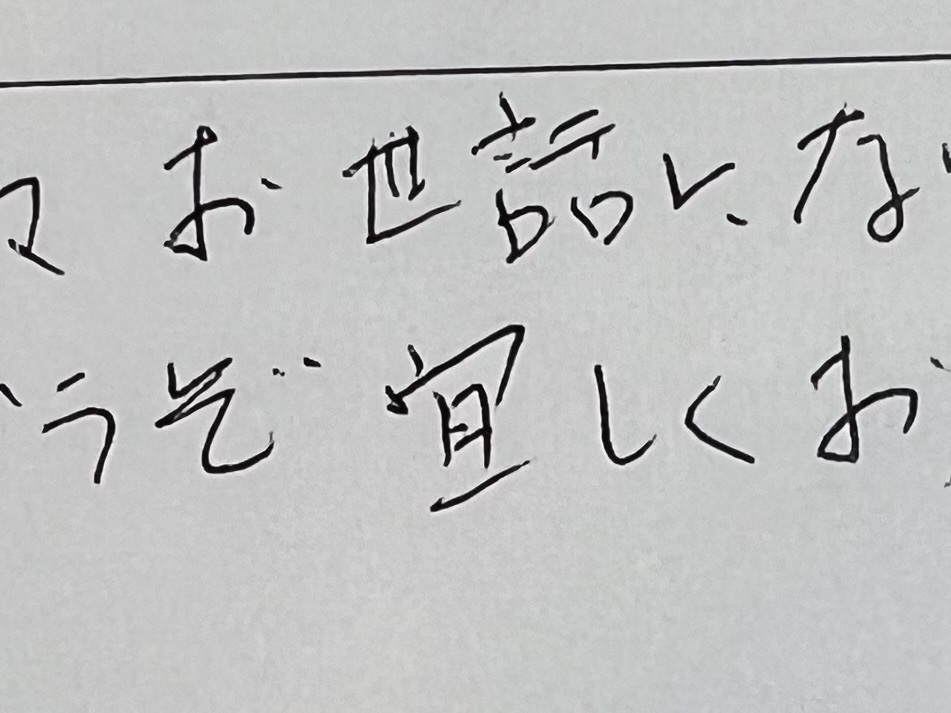 々お世話にな
うぞ宜しくお